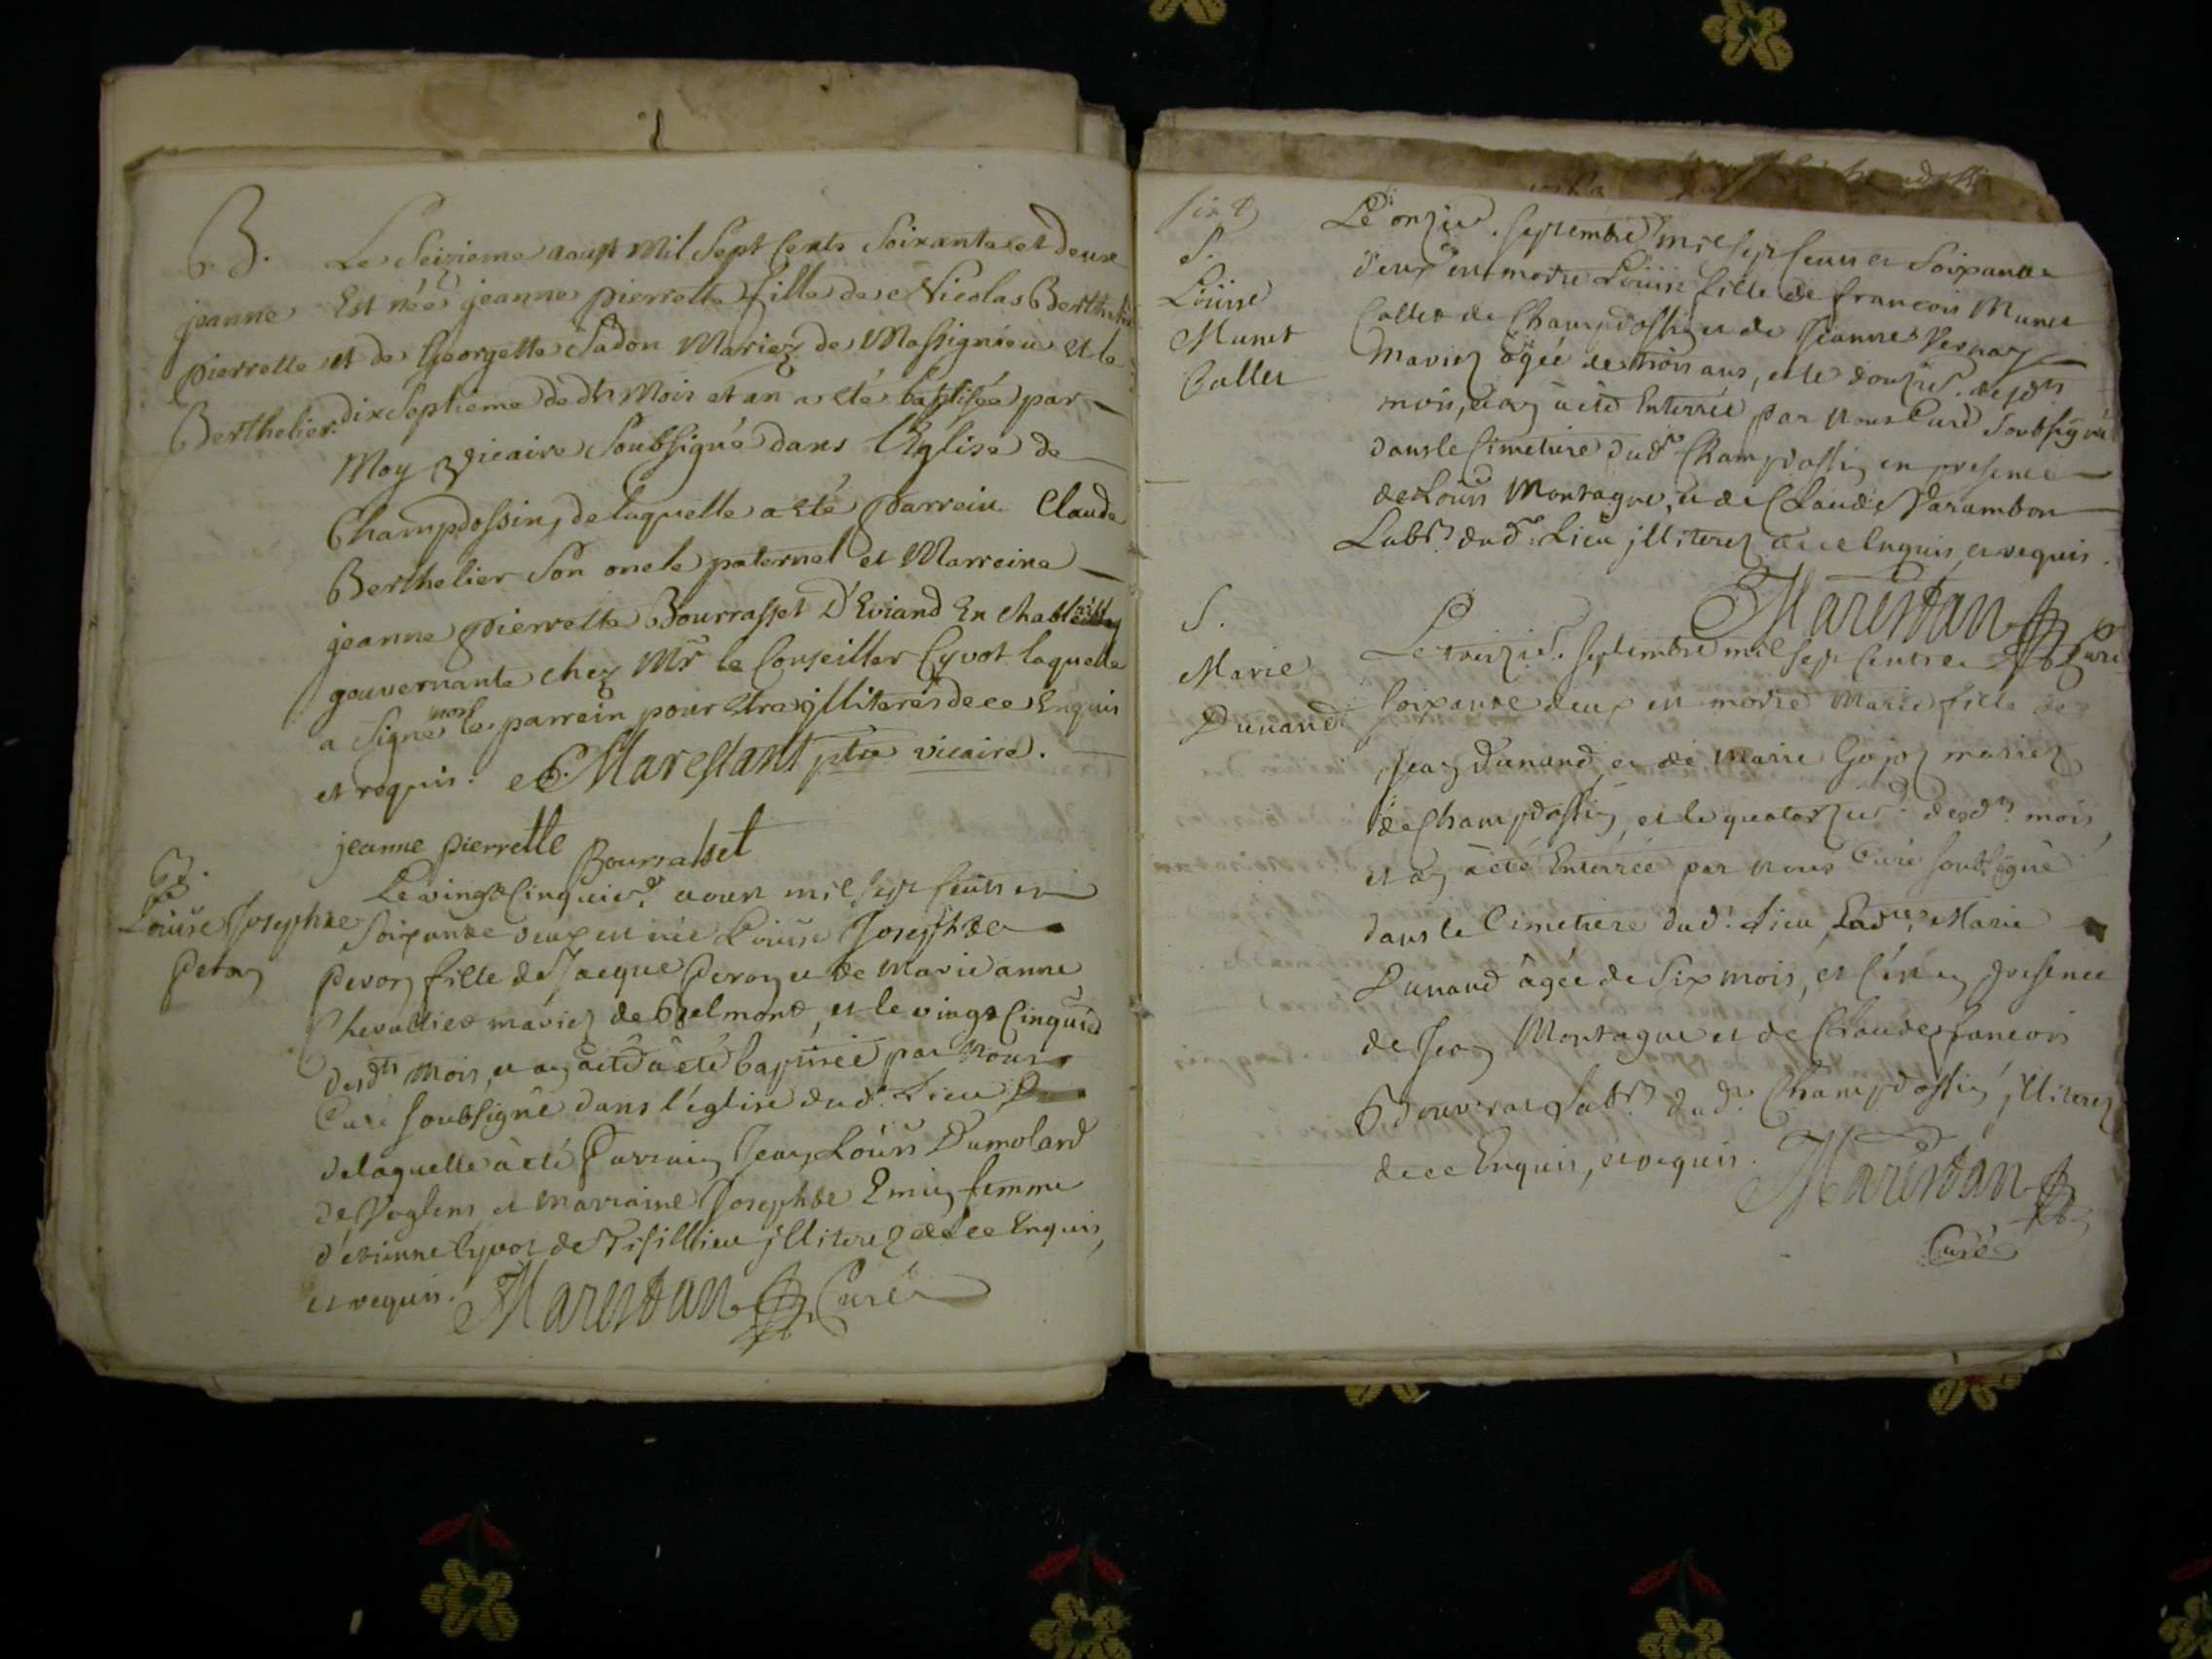 B.
jeanne
pierrette
Berthelier.
Le Seizieme aoust Mil Sept Cents Soixante et deux
Est née jeanne pierrette fille de Nicolas Berthelier
et de Georgette Sadon Mariez de Massignieu et le
dix Septieme de dts Mois et an a été baptisée par
Moy Vicaire Soubsigné dans l'Eglise de
Champdossin, de laquelle a été parrein Claude
Berthelier Son oncle paternel et Marreine
jeanne pierrette Bourrasset D'Eviand En Chablais
gouvernante chez Mr le Conseiller Cyvot laquelle
a Signé non le parrein pour être jlliterés de ce Enquis
et requis. Marestant ptre vicaire.
jeanne pierrette Bourrasset
B.
Louise Josephte
Peron
Le vingt Cinquie. aoust mil sept cents et
soixante deux est née Louise Josephte
Peron fille de Jacque Peron et de Marie anne
Chevallier mariez de Belmont, et le vingt Cinquie
desdts Mois, et an a été a été baptisée par Nous
Curé soubsigné dans l'église dud. Lieu
de laquelle à été Parrain Jean Louis Dumolard
de Voglens et marraine Josephte Emin femme
d'étienne Cyvot de jlliterez de ce Enquis,
et requis. Marestan Curé
S.
Louise
Munet
Callet
Le onzie. septembre mil sept cents et soixante
deux est morte Louise fille de francois Munet
Callet de Champdossin et de Jeanne Vernay
mariez âgée de trois ans, et le douzie. desdts
mois, et an à été Enterrée par Nous Curé soubsigné
dans le Cimetiere dud. Champdossin en presence
de Louis Montagne, et de Claude Varambon
Labrs. dud. Lieu jlliterez de ce Enquis et requis.
Marestan Curé
S.
Marie
Dunand
Le treizie. septembre mil sept cents et
soixante deux est morte Marie fille de
Jean Dunand, et de Marie Gojoz mariez
de Champdossin, et le quatorzie. desdts. mois,
et an à été Enterrée par Nous Curé soubsigné
dans le Cimetiere dud. Lieu, Marie
Dunand âgée de Six mois, et C'est en presence
de Jean Montagne et de Claude francois
Bouvrat Labrs. dud. Champdossin jlliterez
de ce Enquis, et requis. Marestan
Curé